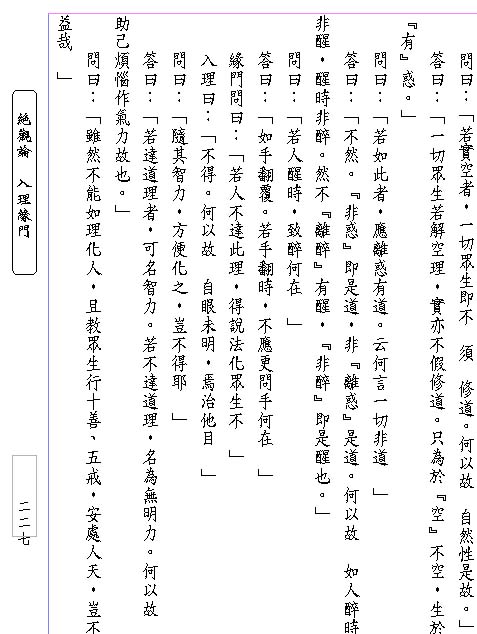 問曰：「若實空者，一切眾生即不 須 修道。何以故 自然性是故。」
答曰：「一切眾生若解空理，實亦不假修道。只為於『空』不空，生於
『有』惑。」
問曰：「若如此者，應離惑有道。云何言一切非道 」
答曰：「不然。『非惑』即是道，非『離惑』是道。何以故 如人醉時
非醒，醒時非醉。然不『離醉』有醒，『非醉』即是醒也。」
問曰：「若人醒時，致醉何在 」
答曰：「如手翻覆。若手翻時，不應更問手何在 」
緣門問曰：「若人不達此理，得說法化眾生不 」
入理曰：「不得。何以故 自眼未明，焉治他目 」
問曰：「隨其智力，方便化之，豈不得耶 」
答曰：「若達道理者，可名智力。若不達道理，名為無明力。何以故
助己煩惱作氣力故也。」
問曰：「雖然不能如理化人，且教眾生行十善、五戒，安處人天，豈不
益哉 」
絕觀論 入理緣門
二二七